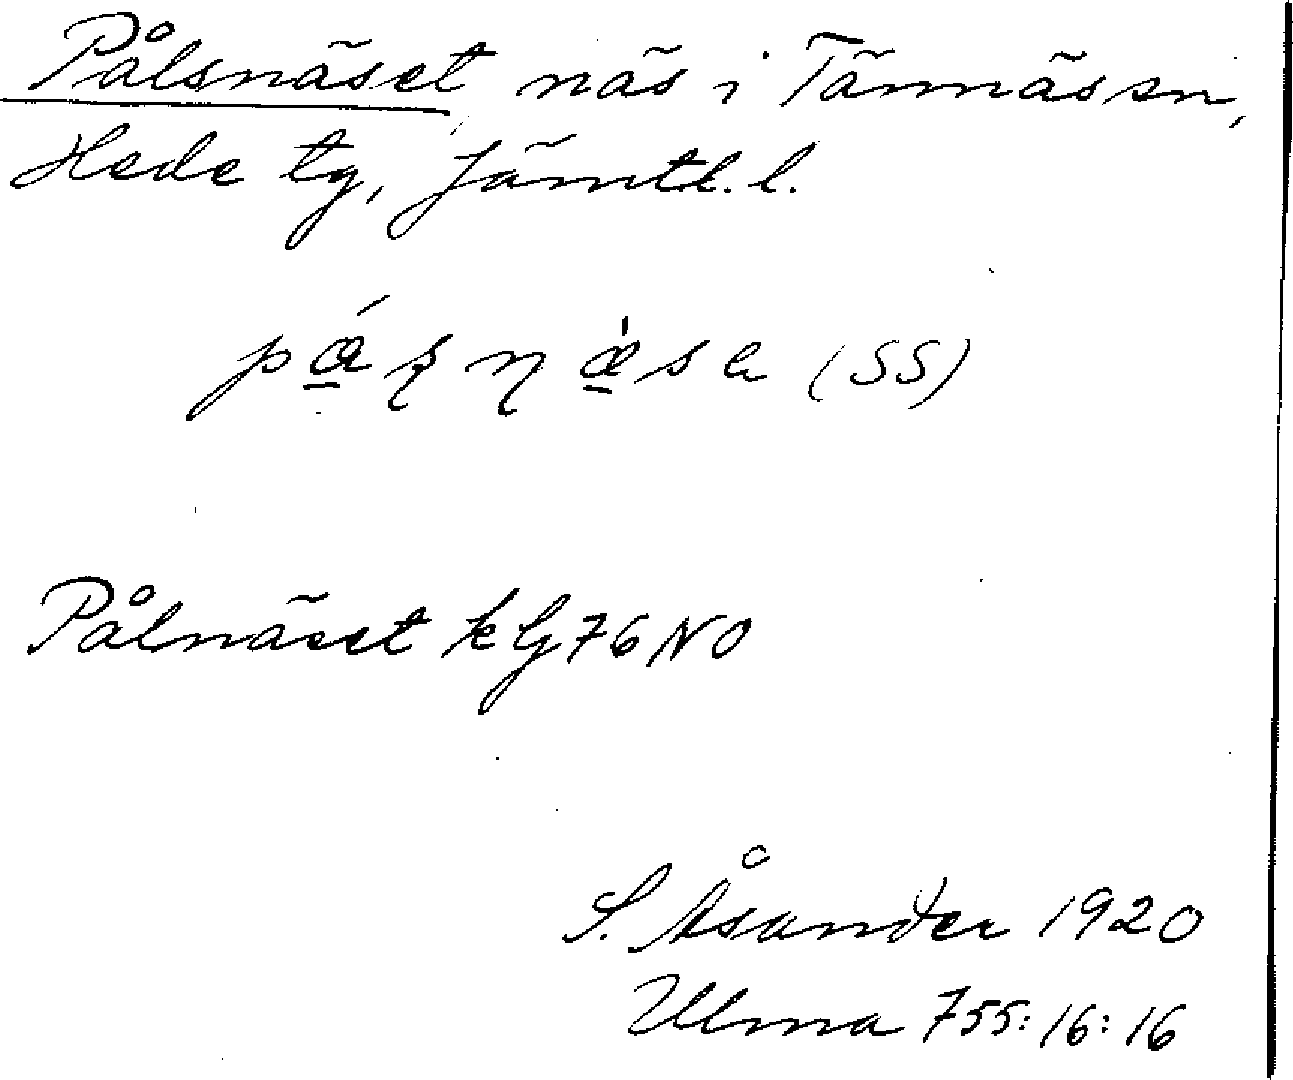 Pålsnäset, näs i Tännäs sn,
Hede tg, Jämtl. l.
(SS)
Pålnäset kG76NO
S. Åsander 1920
Ulma 755:16:16